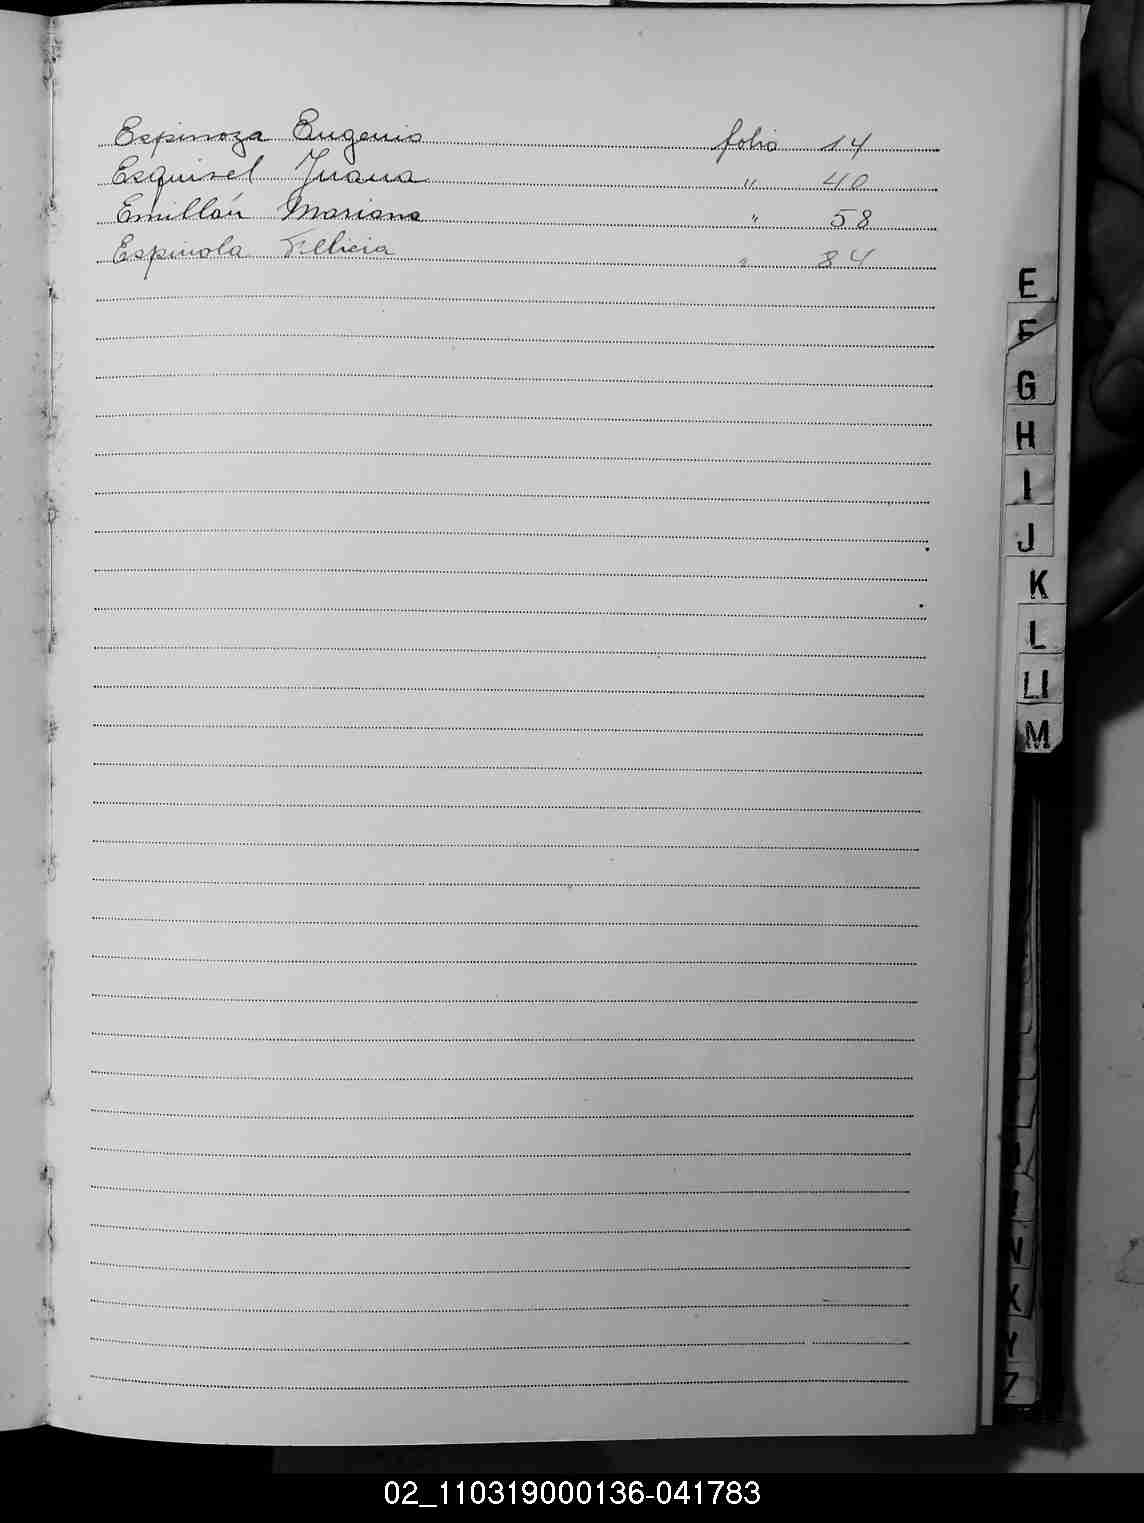 Espinoza Eugenio folio 14
Esquivel Juana " 40
Emillán Mariana " 58
Espinola Fillicia " 84
E
F
G
H
I
J
K
L
Ll
M
N
X
Y
Z
02_110319000136-041783